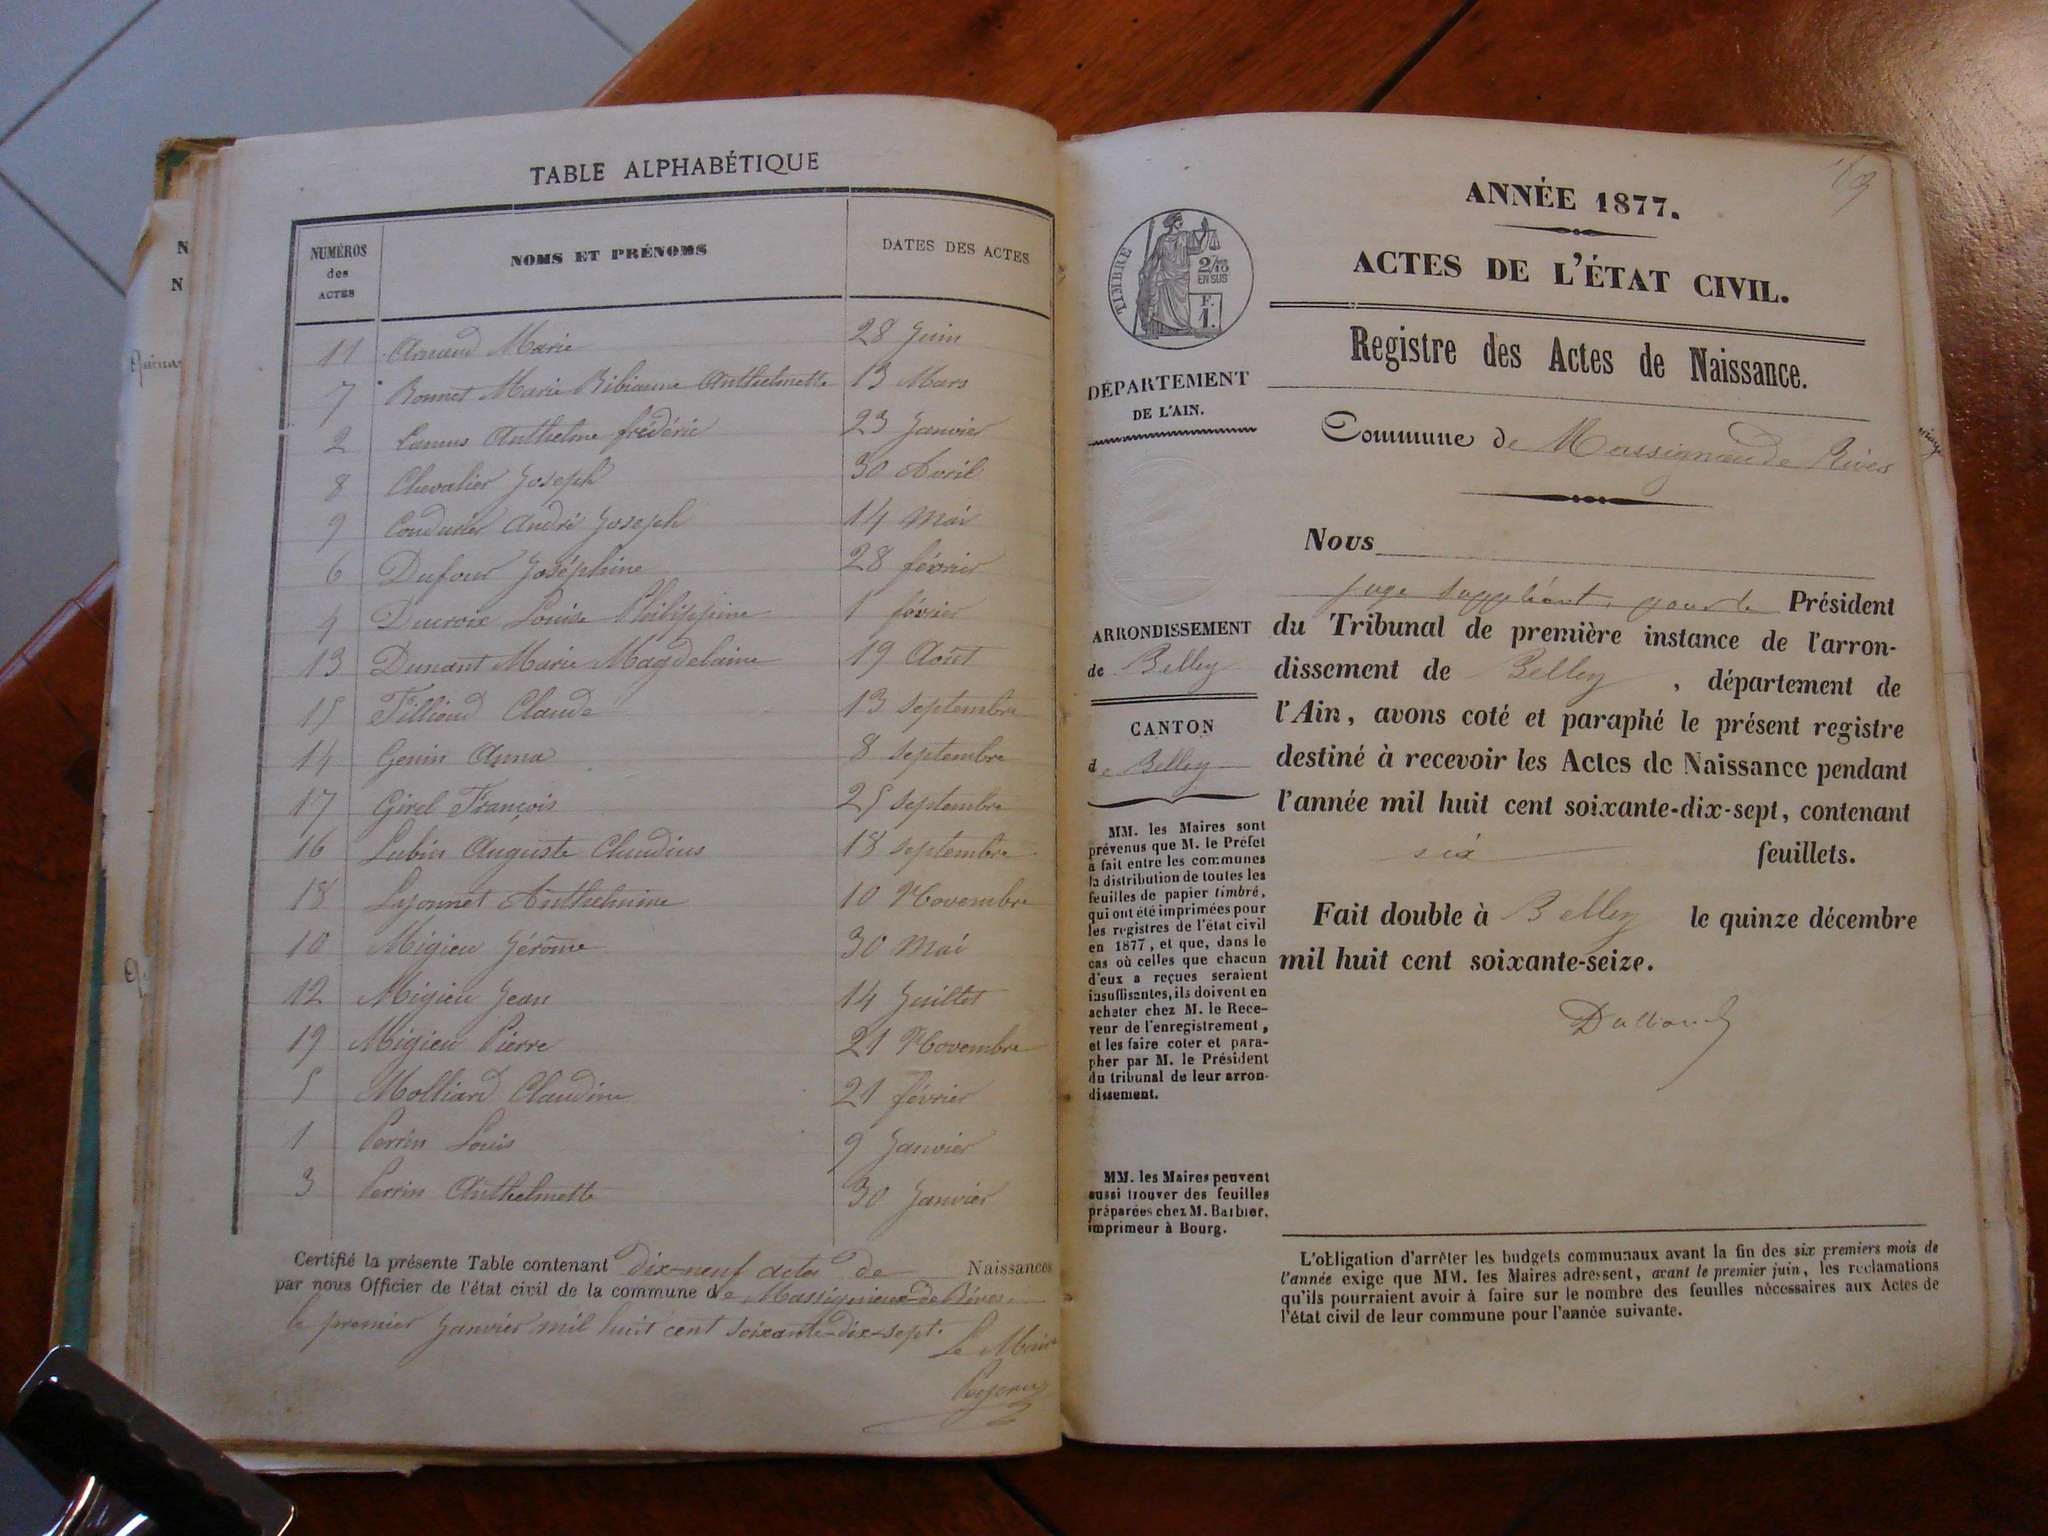 TABLE ALPHABÉTIQUE
NUMÉROS des ACTES NOMS ET PRÉNOMS DATES DES ACTES
11 Arnaud Marie 28 Juin
7 Bonnet Marie Bibianne Anthelmette 13 Mars
2 Camus Anthelme frédéric 23 Janvier
8 Chevalier Joseph 30 Avril
9 André Joseph 14 mai
6 Dufour Joséphine 28 février
4 Ducroix Louise Philippine 1 février
13 Dunant Marie Magdelaine 19 Août
15 Tillioud Claude 13 septembre
14 Genin Anna 8 septembre
17 Girel François 25 septembre
16 Lubin Auguste Claudius 18 septembre
18 Lyonnet Anthelmine 10 Novembre
10 Migieu Jérôme 30 Mai
12 Migieu Jean 14 Juillet
19 Migieu Pierre 21 Novembre
5 Molliard Claudine 21 février
1 Perrin Louis 9 Janvier
3 Perrin Anthelmette 30 Janvier
Certifié la présente Table contenant dix-neuf actes de Naissances
par nous Officier de l'état civil de la commune de Massignieu-de-Rives
le premier Janvier mil huit cent soixante-dix-sept.
Le Maire
ANNÉE 1877.
ACTES DE L'ÉTAT CIVIL.
TIMBRE
2/10
EN SUS
F.
1.
Registre des Actes de Naissance.
DÉPARTEMENT
DE L'AIN.
Commune de Massignieu de Rives
ARRONDISSEMENT
de Belley
CANTON
de Belley
MM. les Maires sont
prévenus que M. le Préfet
a fait entre les communes
la distribution de toutes les
feuilles de papier timbré,
qui ont été imprimées pour
les registres de l'état civil
en 1877, et que, dans le
cas où celles que chacun
d'eux a reçues seraient
insuffisantes, ils doivent en
acheter chez M. le Rece-
veur de l'enregistrement,
et les faire coter et para-
pher par M. le Président
du tribunal de leur arron-
dissement.
MM. les Maires peuvent
aussi trouver des feuilles
préparées chez M. Barbier,
imprimeur à Bourg.
Nous
juge suppléant, pour le Président
du Tribunal de première instance de l'arron-
dissement de Belley, département de
l'Ain, avons coté et paraphé le présent registre
destiné à recevoir les Actes de Naissance pendant
l'année mil huit cent soixante-dix-sept, contenant
six feuillets.
Fait double à Belley le quinze décembre
mil huit cent soixante-seize.
L'obligation d'arrêter les budgets communaux avant la fin des six premiers mois de
l'année exige que MM. les Maires adressent, avant le premier juin, les réclamations
qu'ils pourraient avoir à faire sur le nombre des feuilles nécessaires aux Actes de
l'état civil de leur commune pour l'année suivante.